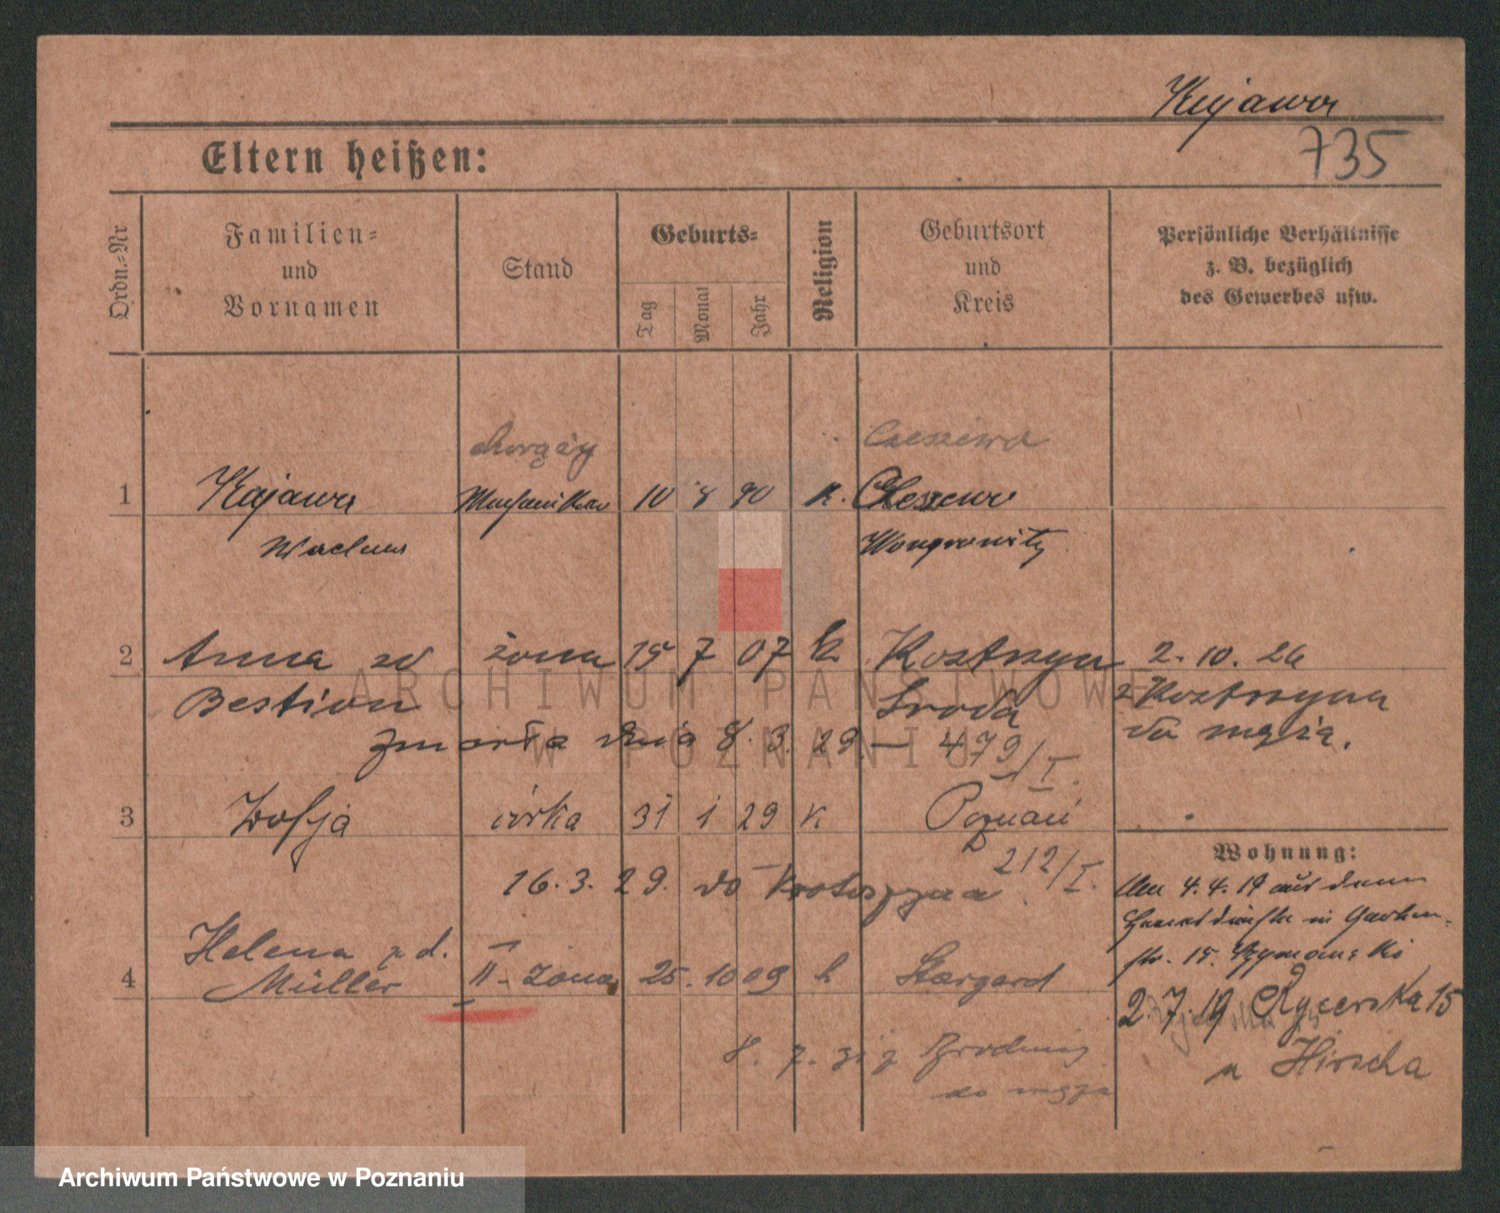 Kujawa
735
Eltern heißen:
Ordn.-Nr
Familien-
und
Vornamen
Stand
Geburts-
Tag
Monat
Jahr
Religion
Geburtsort
und
Kreis
Persönliche Verhältnisse
z. B. bezüglich
des Gewerbes usw.
chorąży
1
Kujawa
10 8 90
k.
Wongrowitz
2
Anna zd
żona
7 07 k
Kostrzyn
2. 10. 26
Bestian
Środa
z Kostrzyna
do męża.
zmarła dnia 8. 3. 29 — 479/I.
3
Zofja
córka
31 1 29 K
Poznań
212/I.
16.3.29. do Krotoszyna
Wohnung:
Am 4.4.19 aus dem
str. 15. Szymański
4
Helena zd.
Müller
II - żona
25. 10 09 k
Stargard
2.7.19 Rycerska 15
u Hirscha
do męża
ARCHIWUM PAŃSTWOWE
W POZNANIU
Archiwum Państwowe w Poznaniu